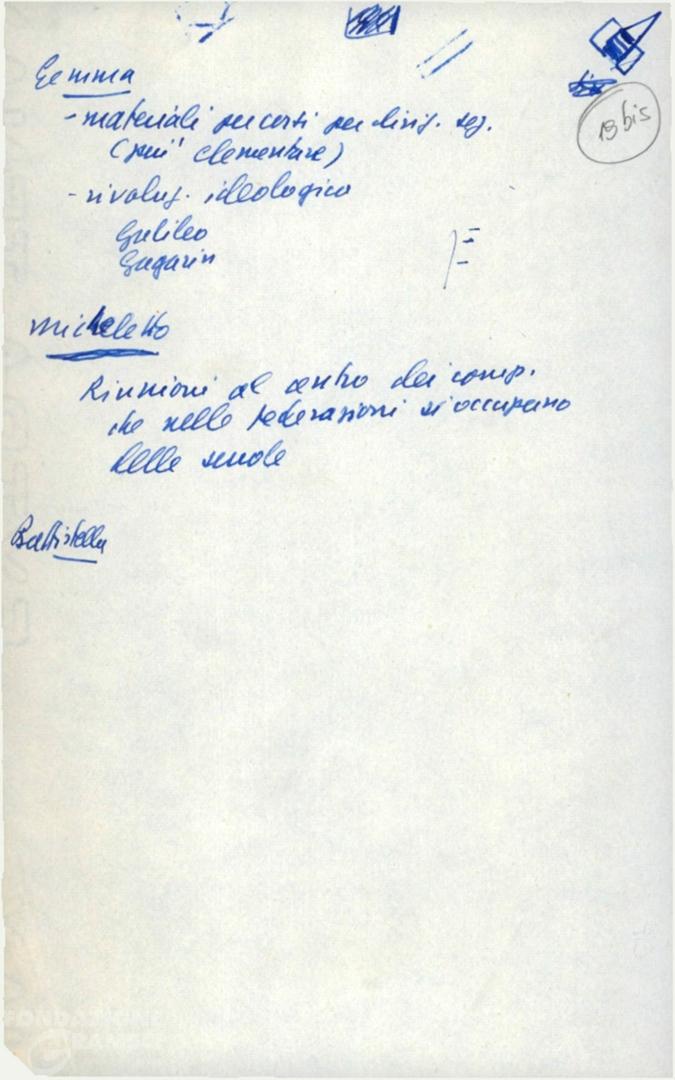 13 bis
Gemma
- materiali per corsi per dirig. sez.
(piu' elementare)
- rivoluz. ideologica
Galileo
Gagarin
Micheletto
Riunioni al centro dei comp.
che nelle federazioni si occupano
delle scuole
Battistella
FONDAZIONE
GRAMSCI